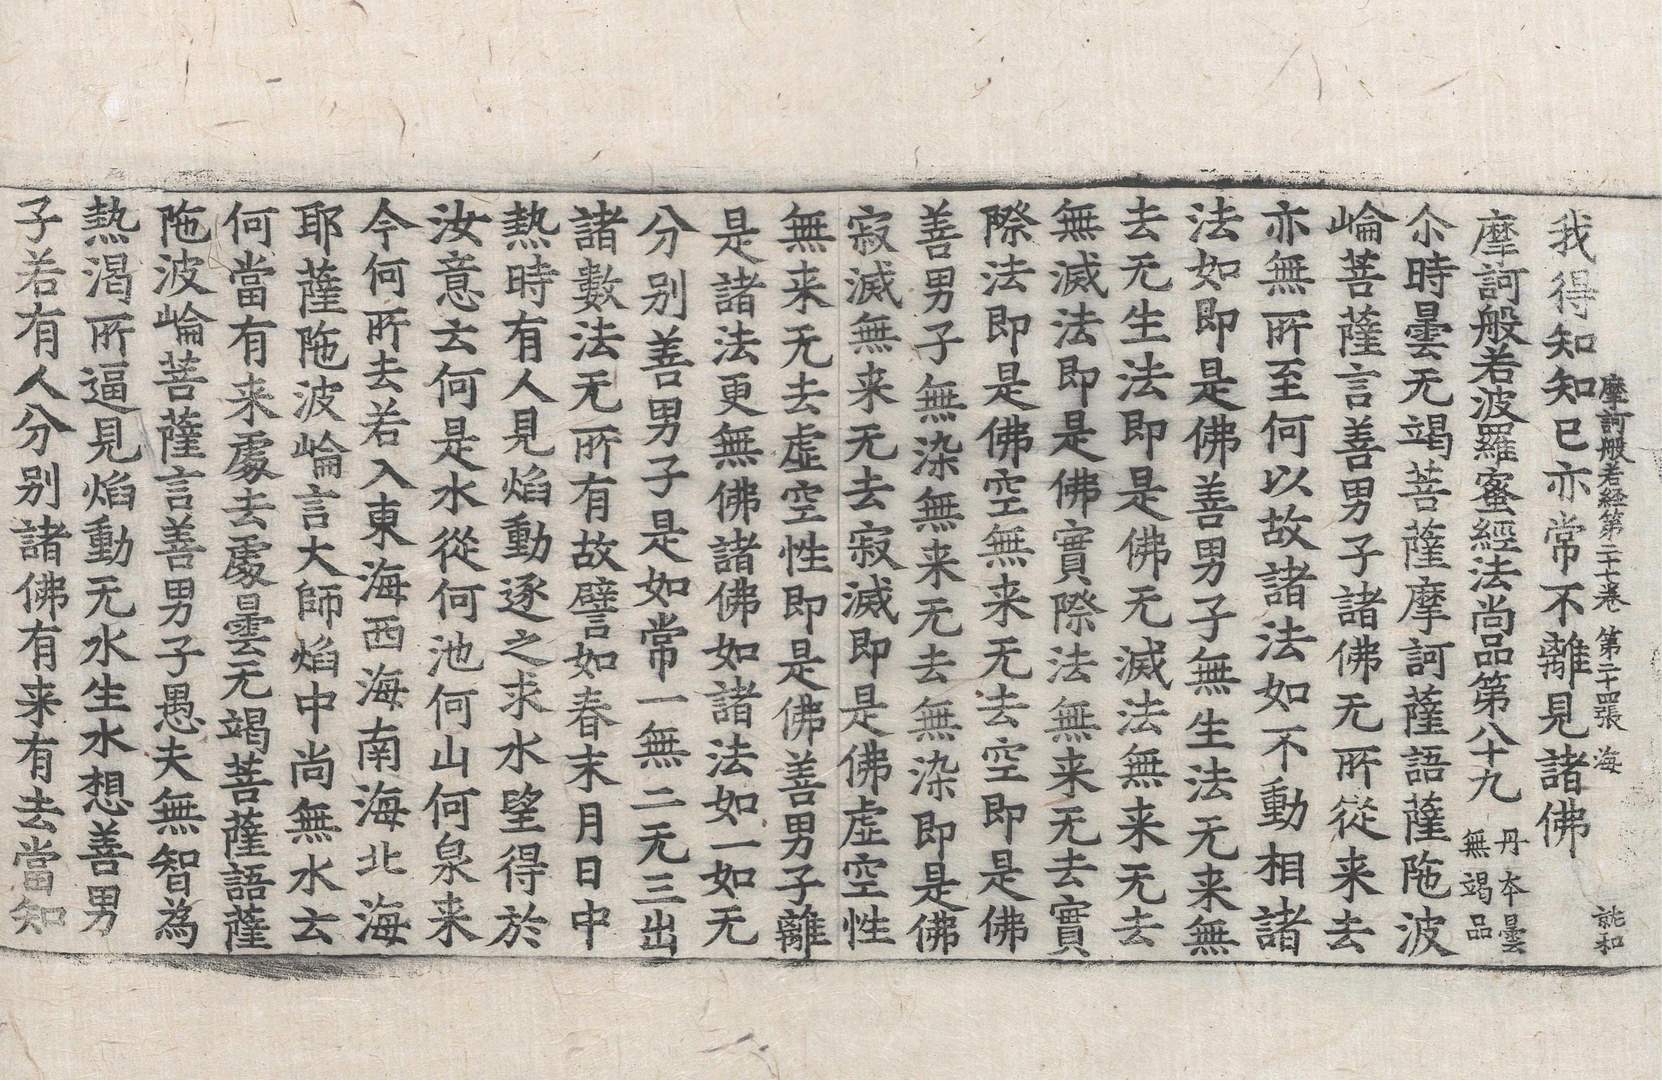 摩訶般若経第二十七卷　第二十四張　海　誂和
我得知知已亦常不離見諸佛
摩訶般若波羅蜜經法尚品第八十九 丹本曇無竭品
尒時曇无竭菩薩摩訶薩語薩陁波
崘菩薩言善男子諸佛无所從来去
亦無所至何以故諸法如不動相諸
法如即是佛善男子無生法无来無
去无生法即是佛无滅法無来无去
無滅法即是佛實際法無来无去實
際法即是佛空無来无去空即是佛
善男子無染無来无去無染即是佛
寂滅無来无去寂滅即是佛虛空性
無来无去虛空性即是佛善男子離
是諸法更無佛諸佛如諸法如一如无
分别善男子是如常一無二无三出
諸數法无所有故譬如春末月日中
熱時有人見焰動逐之求水望得於
汝意云何是水從何池何山何泉来
今何所去若入東海西海南海北海
耶薩陁波崘言大師焰中尚無水云
何當有来處去處曇无竭菩薩語薩
陁波崘菩薩言善男子愚夫無智為
熱渴所逼見焰動无水生水想善男
子若有人分别諸佛有来有去當知